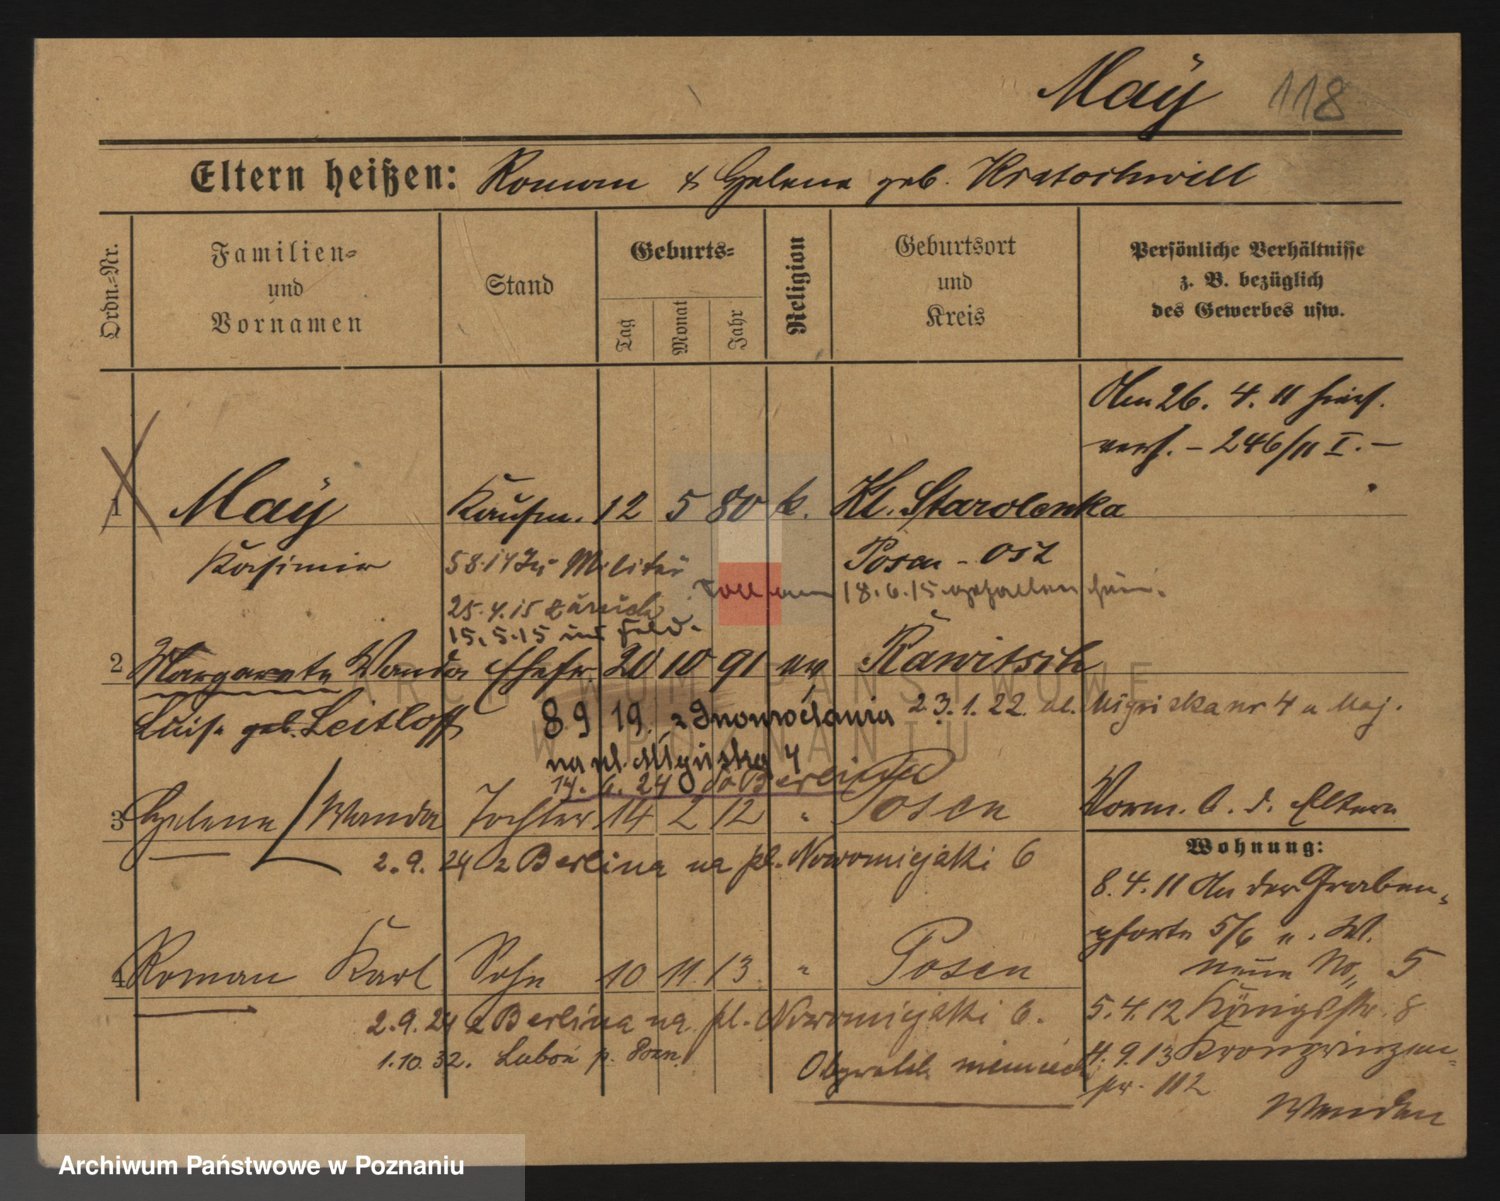 Maÿ 118
Eltern heißen: Roman & Helene geb. Kratochwill
Ordn.-Nr.
Familien-
und
Vornamen
Stand
Geburts-
Tag
Monat
Jahr
Religion
Geburtsort
und
Kreis
Persönliche Verhältnisse
z. B. bezüglich
des Gewerbes usw.
Am 26. 4. 11 hies.
verh. - 246/11 I. -
1 Maÿ Kaufm. 12 5 80 k. Kl. Starolenka
Kasimir
58.14 Militär
Posen - Ost
25.4.15 zurück
soll am 18.6.15 gefallen sein.
15.5.15 ins Feld.
2 Margarete Wanda Ehefr. 20 10 91 ev Rawitsch
Luise geb. Leitloff
8 9 19. z Inowrocławia
23.1.22. ul. Młyńska nr 4 u Maj.
na ul. Młyńską 4
14. 6. 24 do Berlina
3 Helene / Wanda Tochter 14 2 12 " Posen
Vorm. b. d. Eltern
2. 9. 24 z Berlina na pl. Nowomiejski 6
Wohnung:
8. 4. 11 An der Graben-
pforte 5/6 u. W.
neue No, 5
4 Roman Karl Sohn 10 11 13 " Posen
2.9.24 z Berlina na pl. Nowomiejski 6.
5.4.12 Königstr. 8
1.10.32. Luboń p. Pozn.
4.9.13 Kronprinzen-
Obywatel. niemieck.
str. 112
Wenden
ARCHIWUM PAŃSTWOWE
W POZNANIU
Archiwum Państwowe w Poznaniu